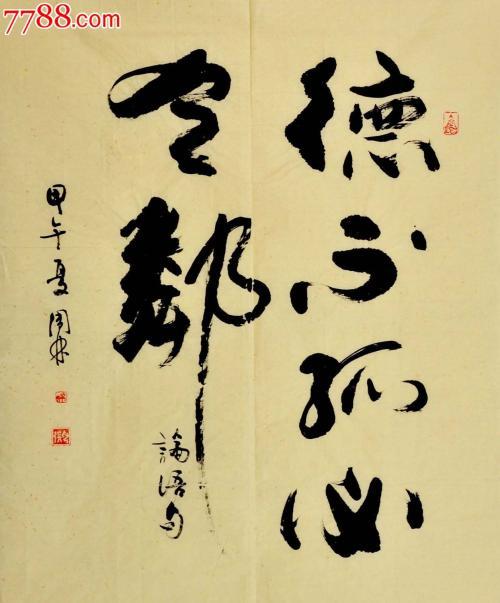 德不孤必
有鄰
論語句
甲午夏周林
7788.com